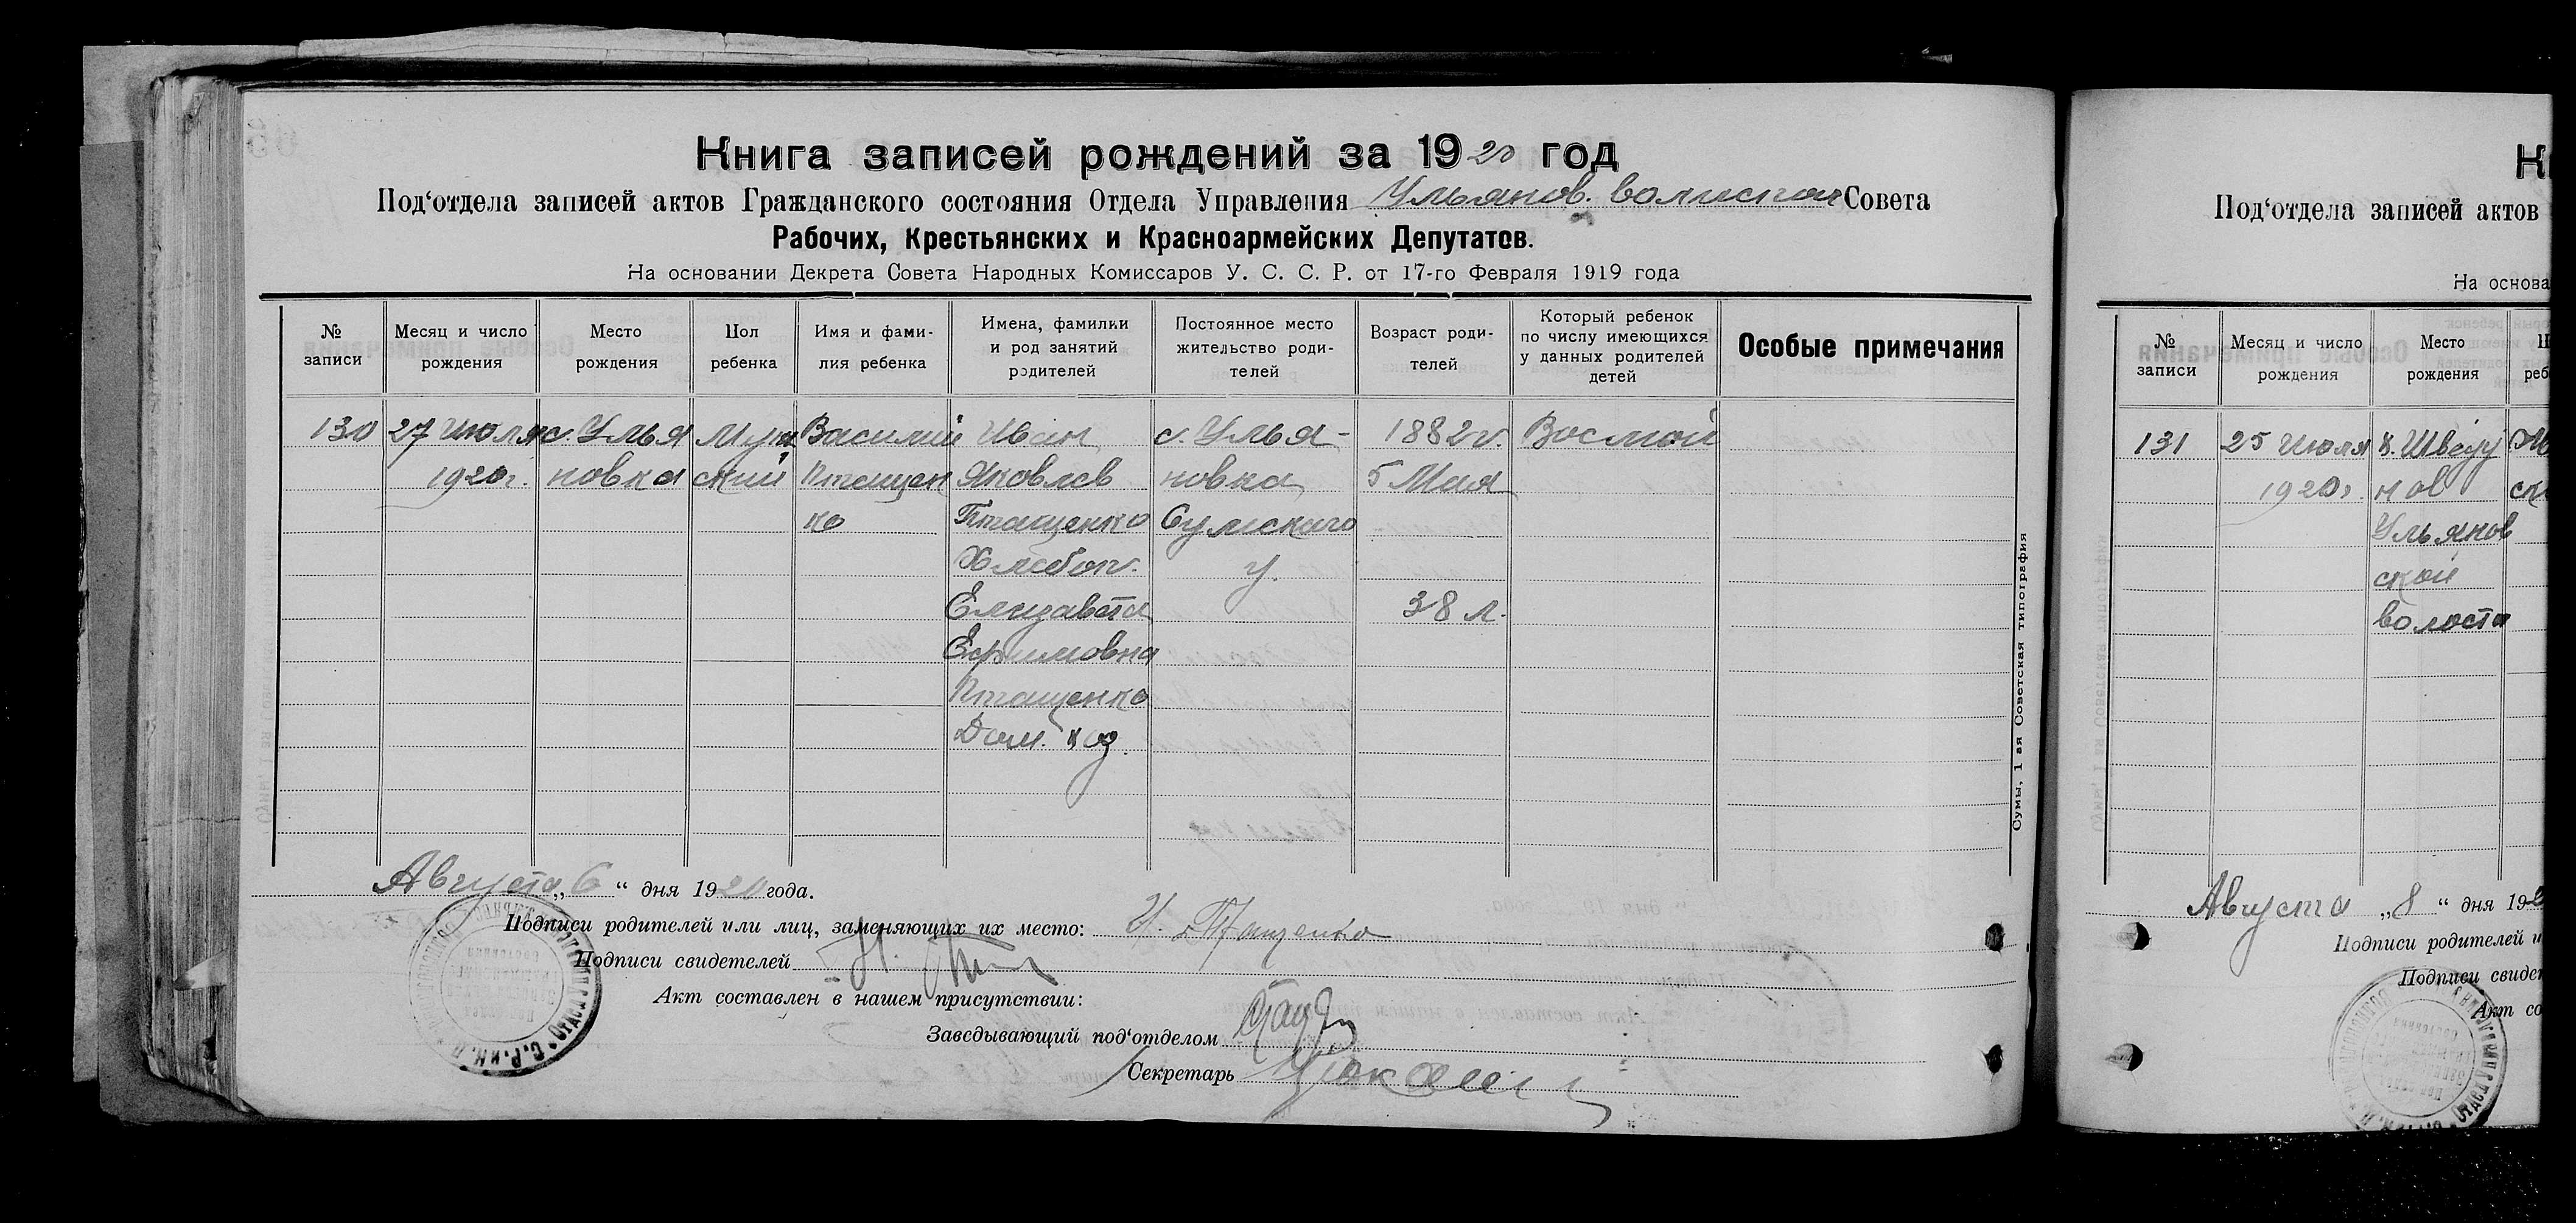 Книга записей рождений за 1920 год
Под'отдела записей актов Гражданского состояния Отдела Управления Ульянов. волисполк Совета
Рабочих, Крестьянских и Красноармейских Депутатов.
На основании Декрета Совета Народных Комиссаров У. С. С. Р. от 17-го Февраля 1919 года
№ записи
Месяц и число рождения
Место рождения
Пол ребенка
Имя и фами-
лия ребенка
Имена, фамилии
и род занятий
родителей
Постоянное место
жительство роди-
телей
Возраст роди-
телей
Который ребенок
по числу имеющихся
у данных родителей
детей
Особые примечания
130
27 Июля
1920г.
с. Улья
новка
Муж
ский
Василий
Птащен
ко
Иван
Яковлев
Птащенко
Хлебоп.
Елизавета
Ефимовна
Птащенко
Дом. хоз.
с. Улья-
новка
Сумского
у.
1882г.
5 Мая
38 л.
Восмой
Августа „6“ дня 1920 года.
Подписи родителей или лиц, заменяющих их место: И. Птащенко
Подписи свидетелей
Акт составлен в нашем присутствии:
Заведывающий под'отделом
Секретарь
Сумы, 1 ая Советская типография
К
Под'отдела записей актов
На основа
№ записи
Месяц и число рождения
Место рождения
П
реб
131
25 Июля
1920г.
нов
Ульянов
ской
волости
Августа „8“ дня 192
Подписи родителей и
Подписи свидет
Акт со